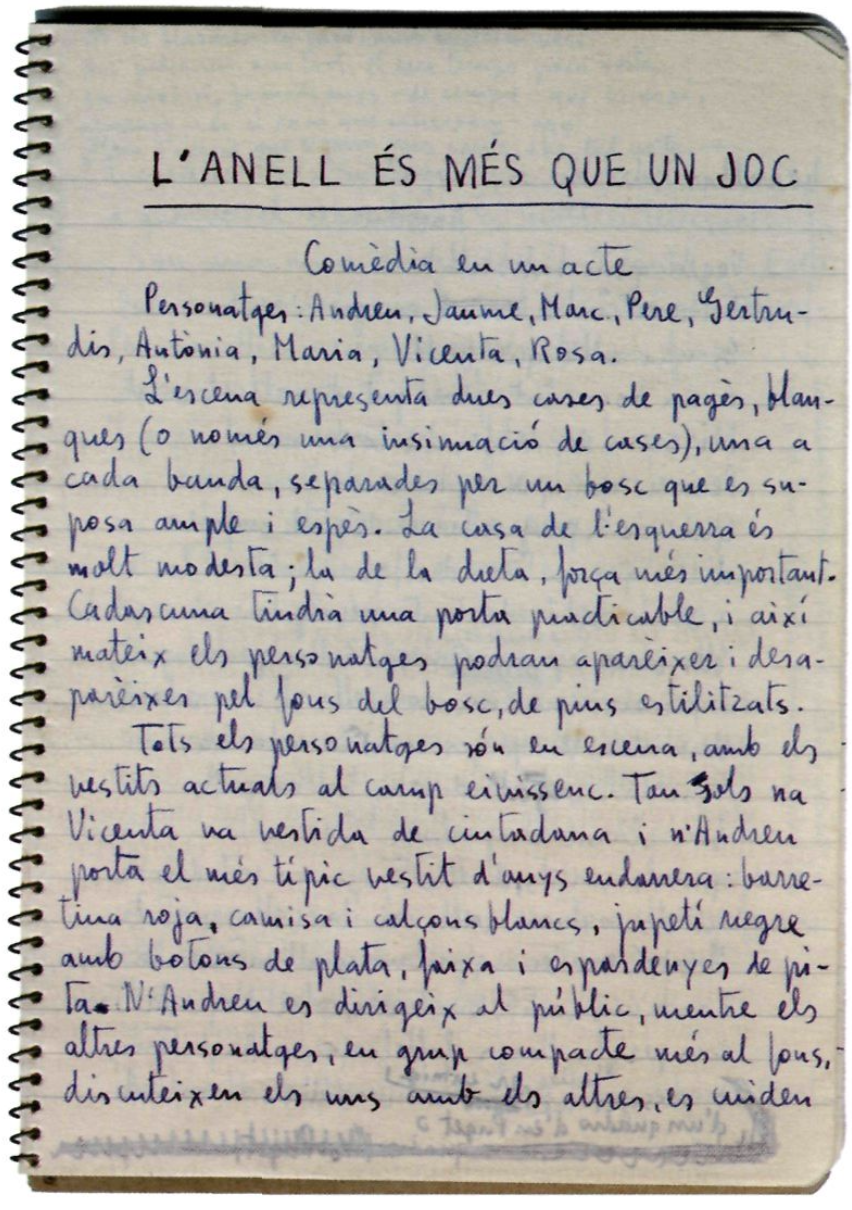 L'ANELL ÉS MÉS QUE UN JOC
Comèdia en un acte
Personatges: Andreu, Jaume, Marc, Pere, Gertru-
dis, Antònia, Maria, Vicenta, Rosa.
L'escena representa dues cases de pagès, blan-
ques (o només una insinuació de cases), una a
cada banda, separades per un bosc que es su-
posa ample i espès. La casa de l'esquerra és
molt modesta; la de la dreta, força més important.
Cadascuna tindrà una porta practicable, i així
mateix els personatges podran aparèixer i desa-
parèixer pel fons del bosc, de pins estilitzats.
Tots els personatges són en escena, amb els
vestits actuals al camp eivissenc. Tan sols na
Vicenta va vestida de ciutadana i n'Andreu
porta el més típic vestit d'anys endarrera: barre-
tina roja, camisa i calçons blancs, jupetí negre
amb botons de plata, faixa i espardenyes de pi-
ta. N'Andreu es dirigeix al públic, mentre els
altres personatges, en grup compacte més al fons,
discuteixen els uns amb els altres, es criden